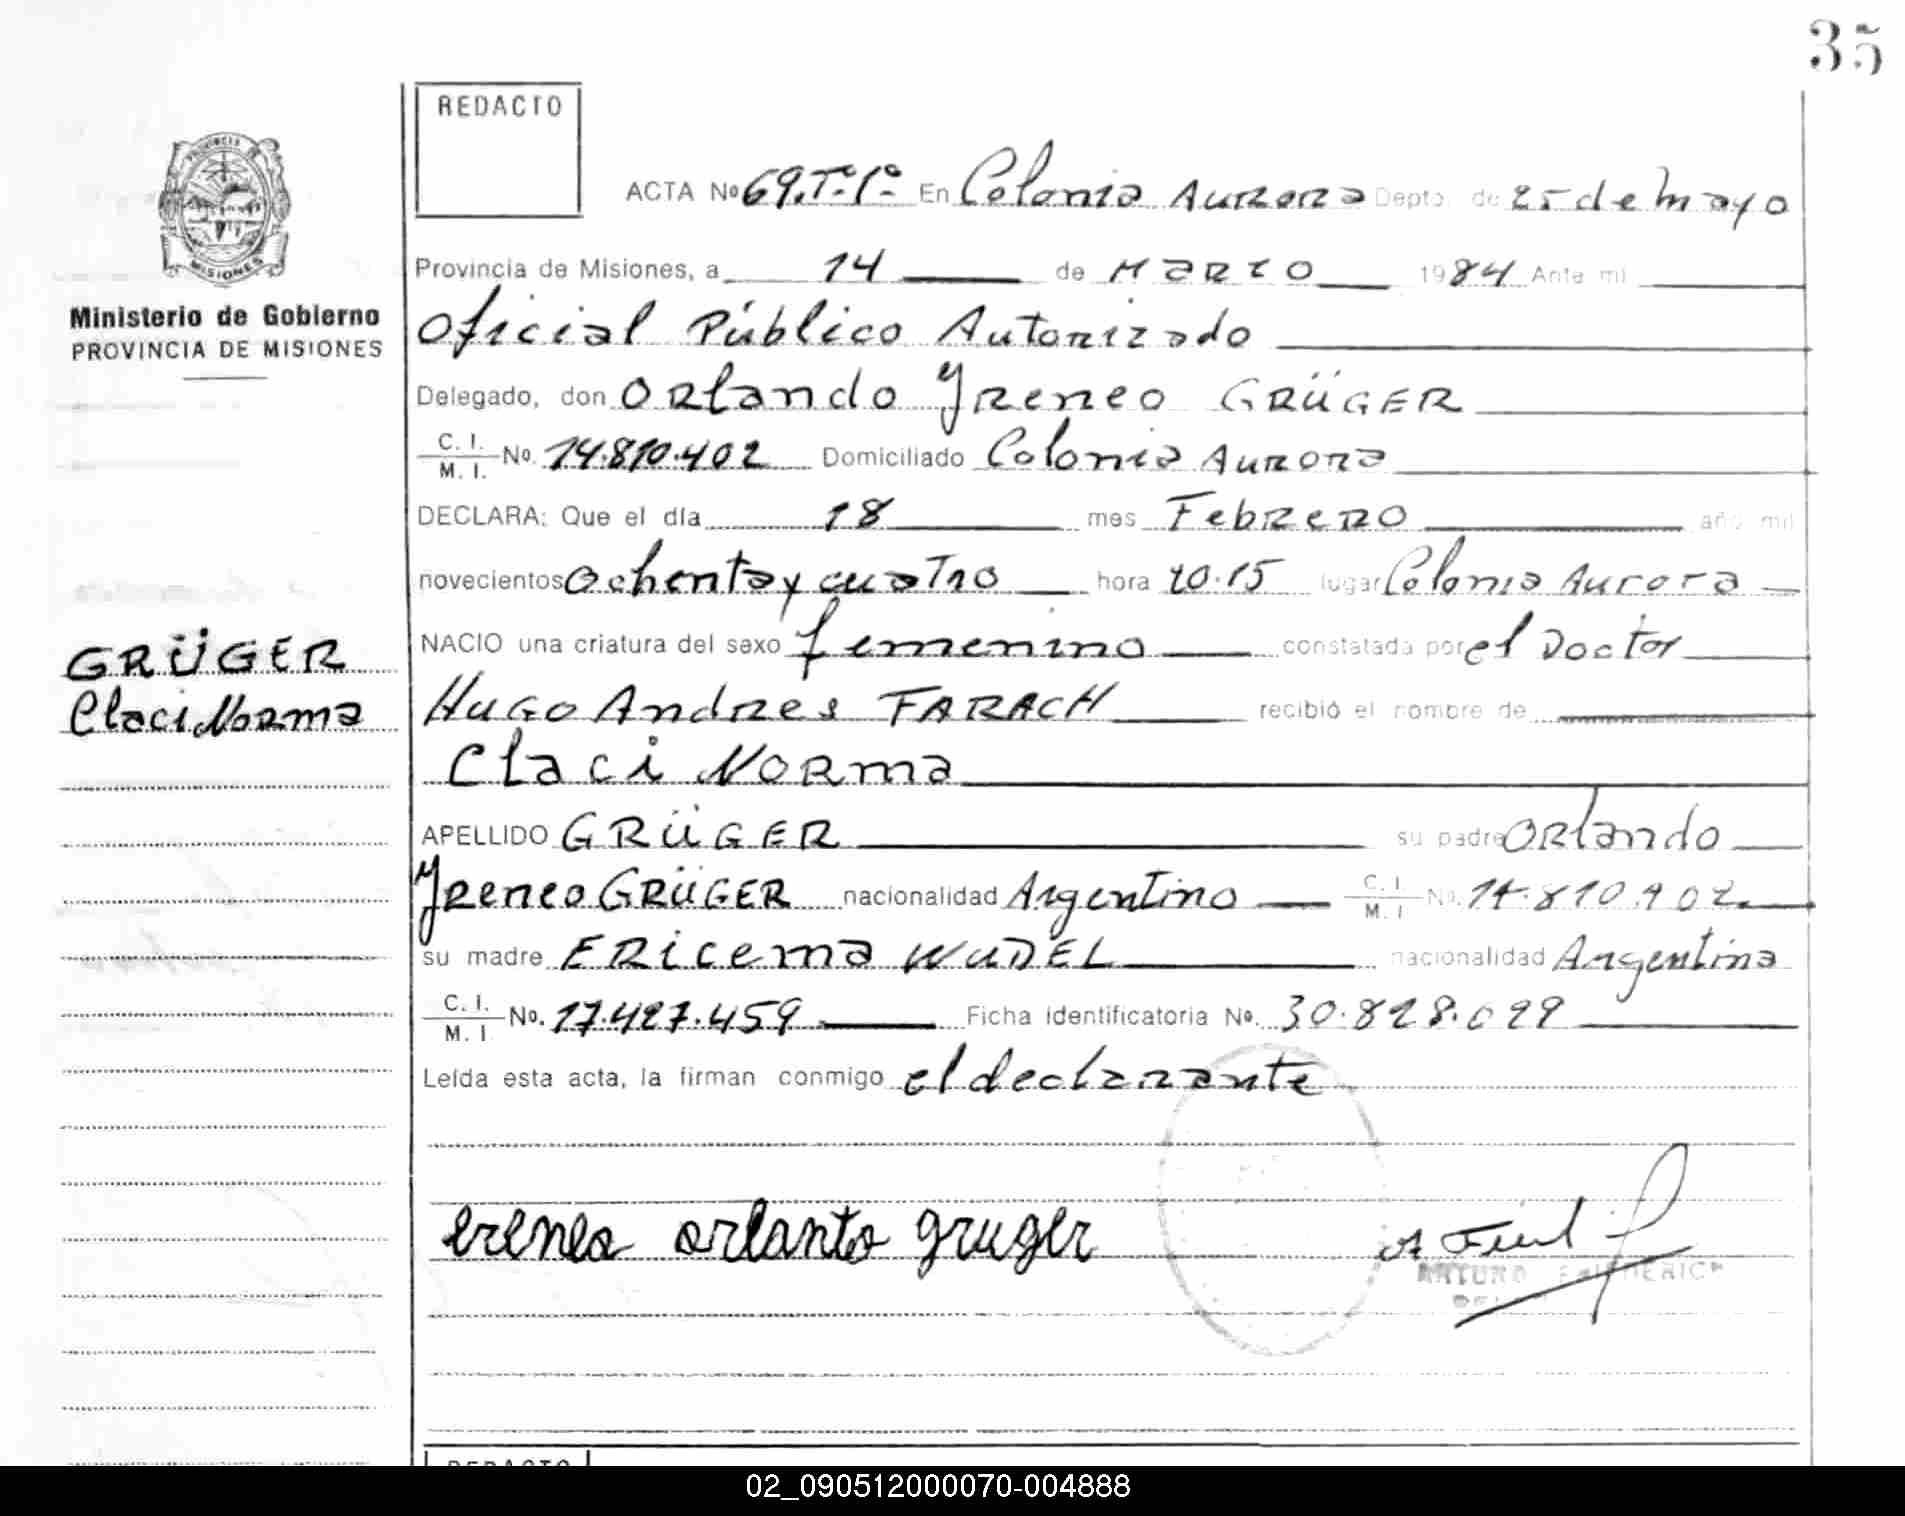 35
REDACTO
PROVINCIA DE
MISIONES
ACTA Nº 69.Tº.1º. En Colonia Aurora Depto de 25 de mayo
Provincia de Misiones, a 14 de Marzo 1984 Ante mi
Ministerio de Gobierno
PROVINCIA DE MISIONES
Oficial Público Autorizado
Delegado, don Orlando Yreneo GRÜGER
C. I.
M. I. Nº. 14.810.402 Domiciliado Colonia Aurora
DECLARA: Que el día 18 mes Febrero año mil
novecientos ochenta y cuatro hora 10.15 lugar Colonia Aurora
NACIO una criatura del sexo femenino constatada por el Doctor
GRÜGER
Claci Norma
Hugo Andres FARACH recibió el nombre de
Claci Norma
APELLIDO GRÜGER su padre Orlando
Yreneo GRÜGER nacionalidad Argentino C. I.
M. I Nº. 14.810.402
su madre ERicema WUDEL nacionalidad Argentina
C. I.
M. I Nº. 17.427.459 Ficha identificatoria Nº.
Leída esta acta, la firman conmigo el declarante
erenea orlanto gruger
ARTURO
REDACTO
02_090512000070-004888